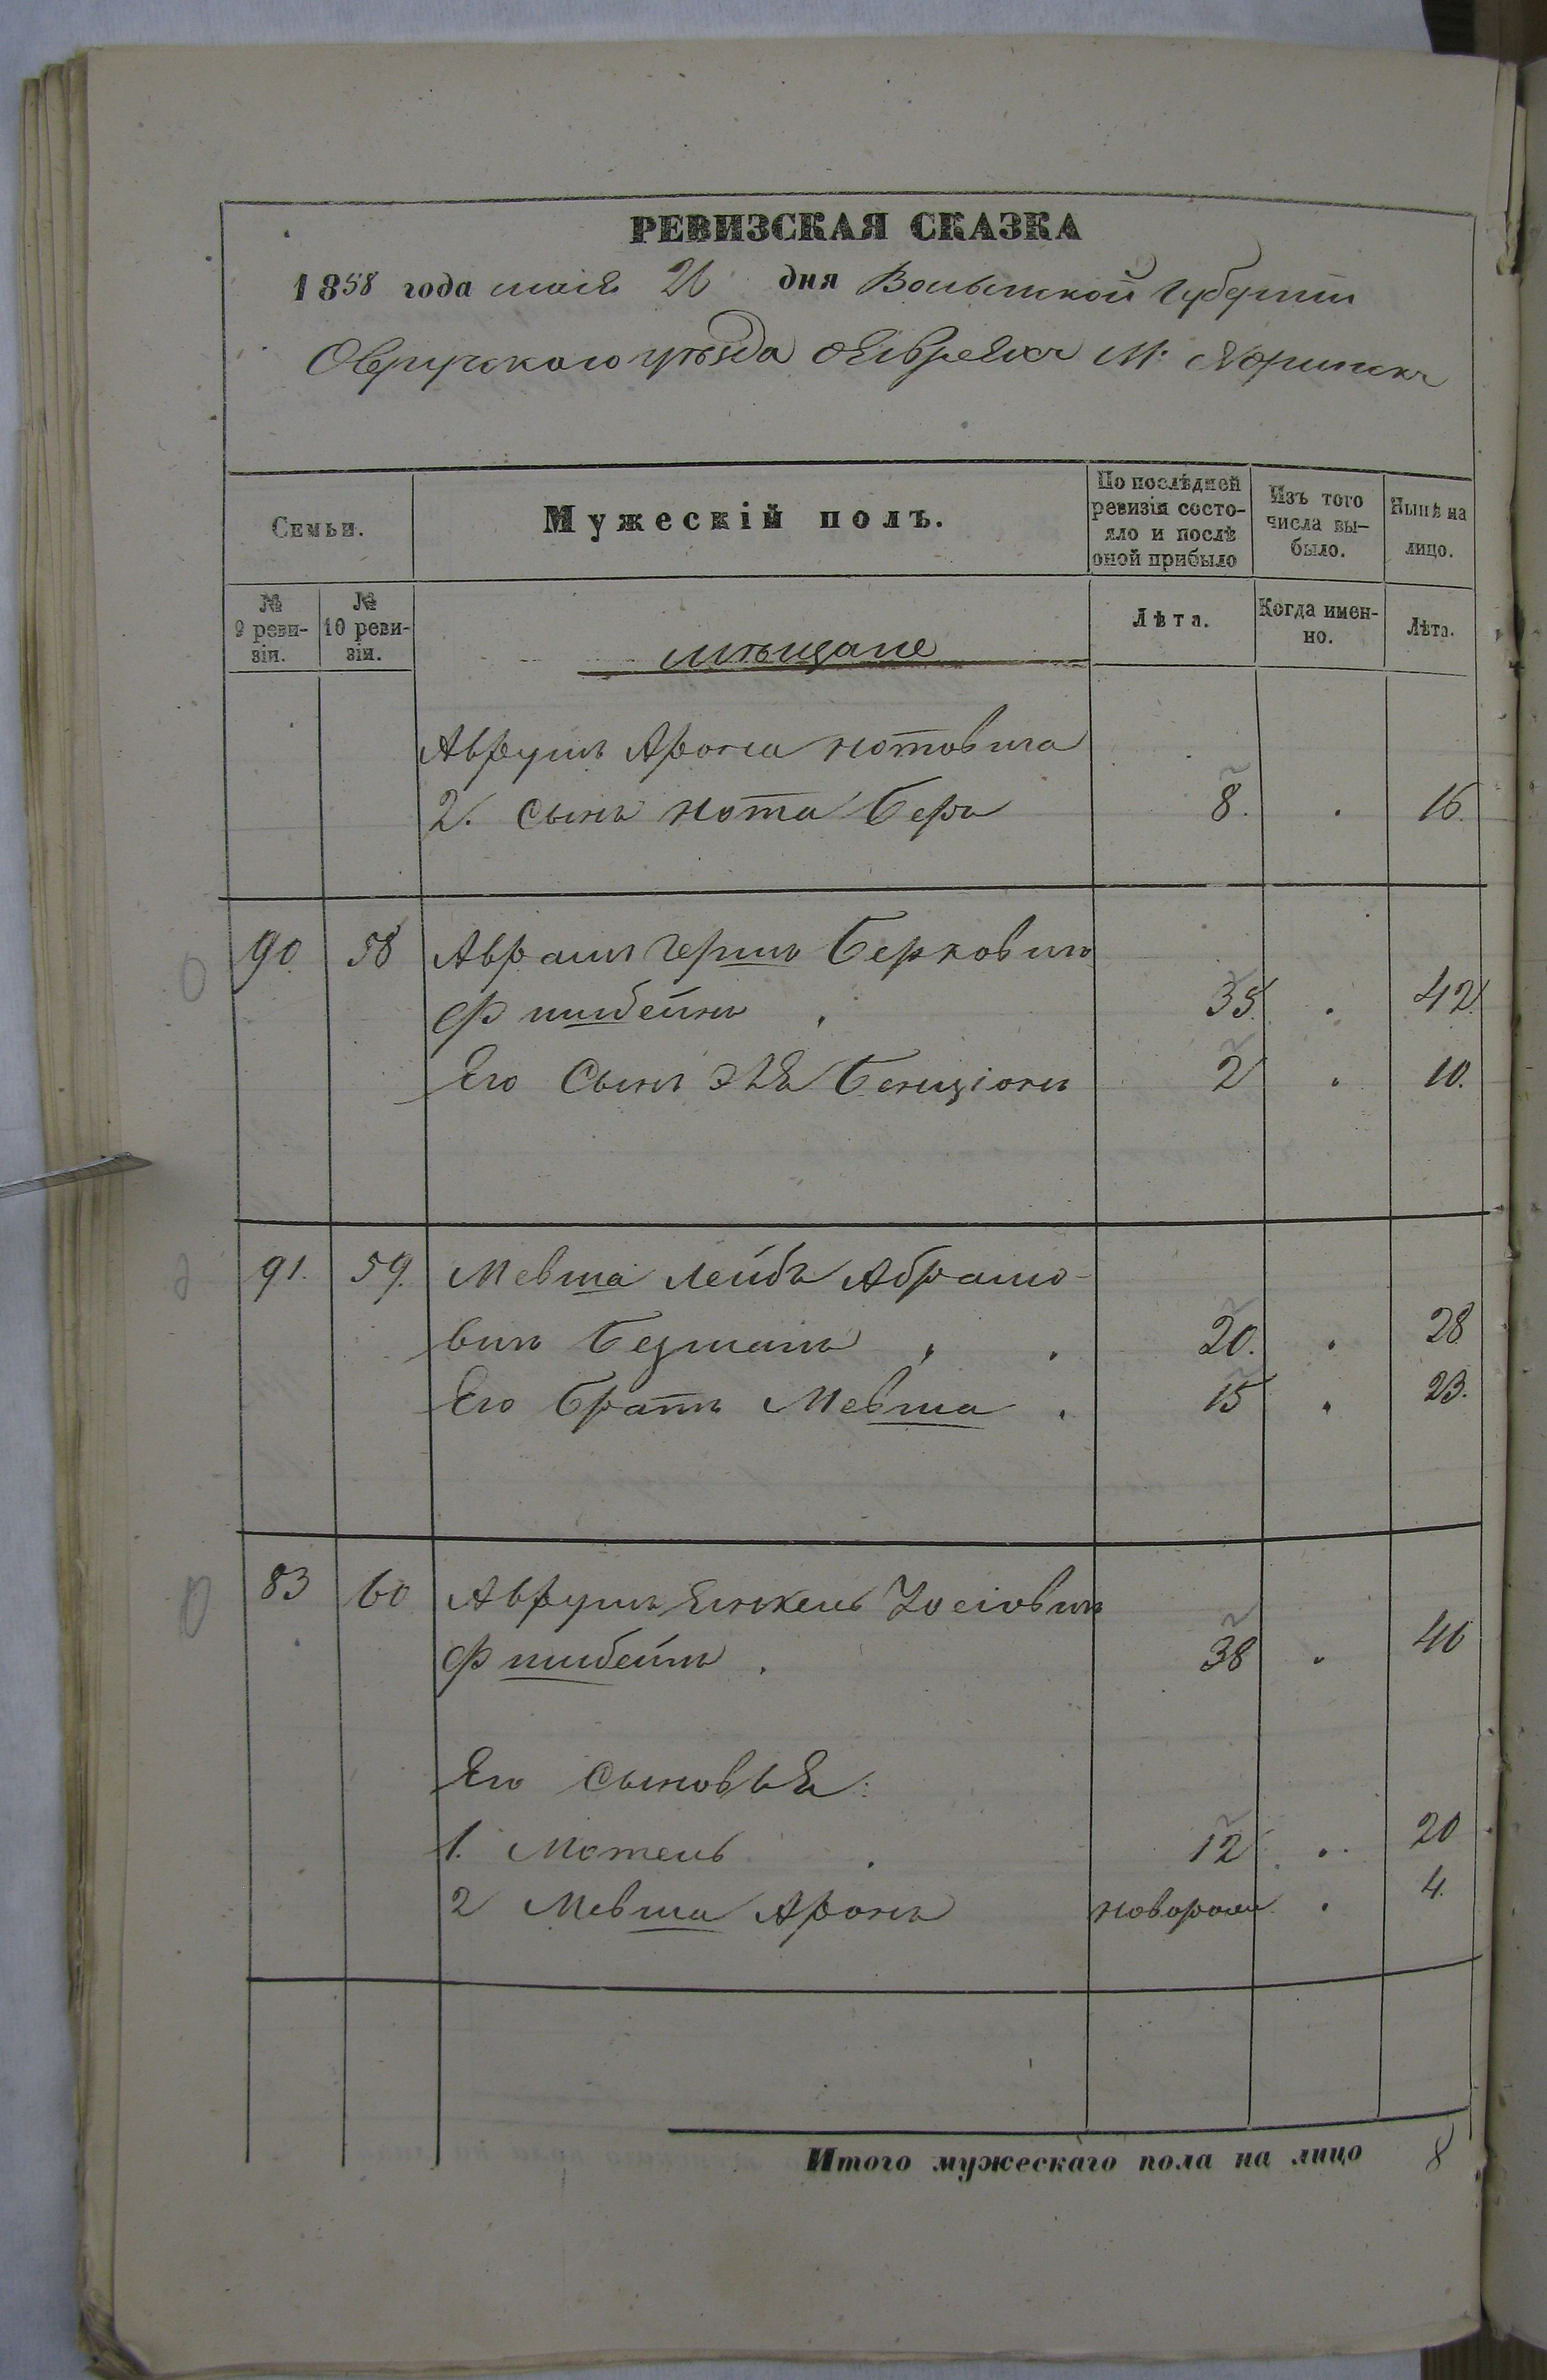 РЕВИЗСКАЯ СКАЗКА
1858 года маія 26 дня Волынской губерніи
Овручскаго уѣзда о Евреяхъ М: Норинскъ
Семьи.
Мужескій полъ.
По послѣдней ревизія состояло и послѣ оной прибыло
Изъ того числа выбыло.
Нынѣ на лицо.
№ 9 ревизіи.
№ 10 ревизіи.
мѣщане
Лѣта.
Когда именно.
Лѣта.
Аврумъ Арона Нотовича
2. Сынъ Нота Беръ 8. 16.
90 58 Аврамъ Гершъ Берковичъ
Фишбейнъ 35 42
Его Сынъ Эля Бенціонъ 2 10.
91. 59. Мевша Лейбъ Абрамо-
вичъ Безманъ 20. 28
Его братъ Мевша 15 23.
83 60 Аврумъ Янкель Іосіовичъ
Фишбейнъ 38 46
Его Сыновья:
1. Мотель 12 20
2 Мевша Аронъ новорож. 4.
Итого мужескаго пола на лицо 8